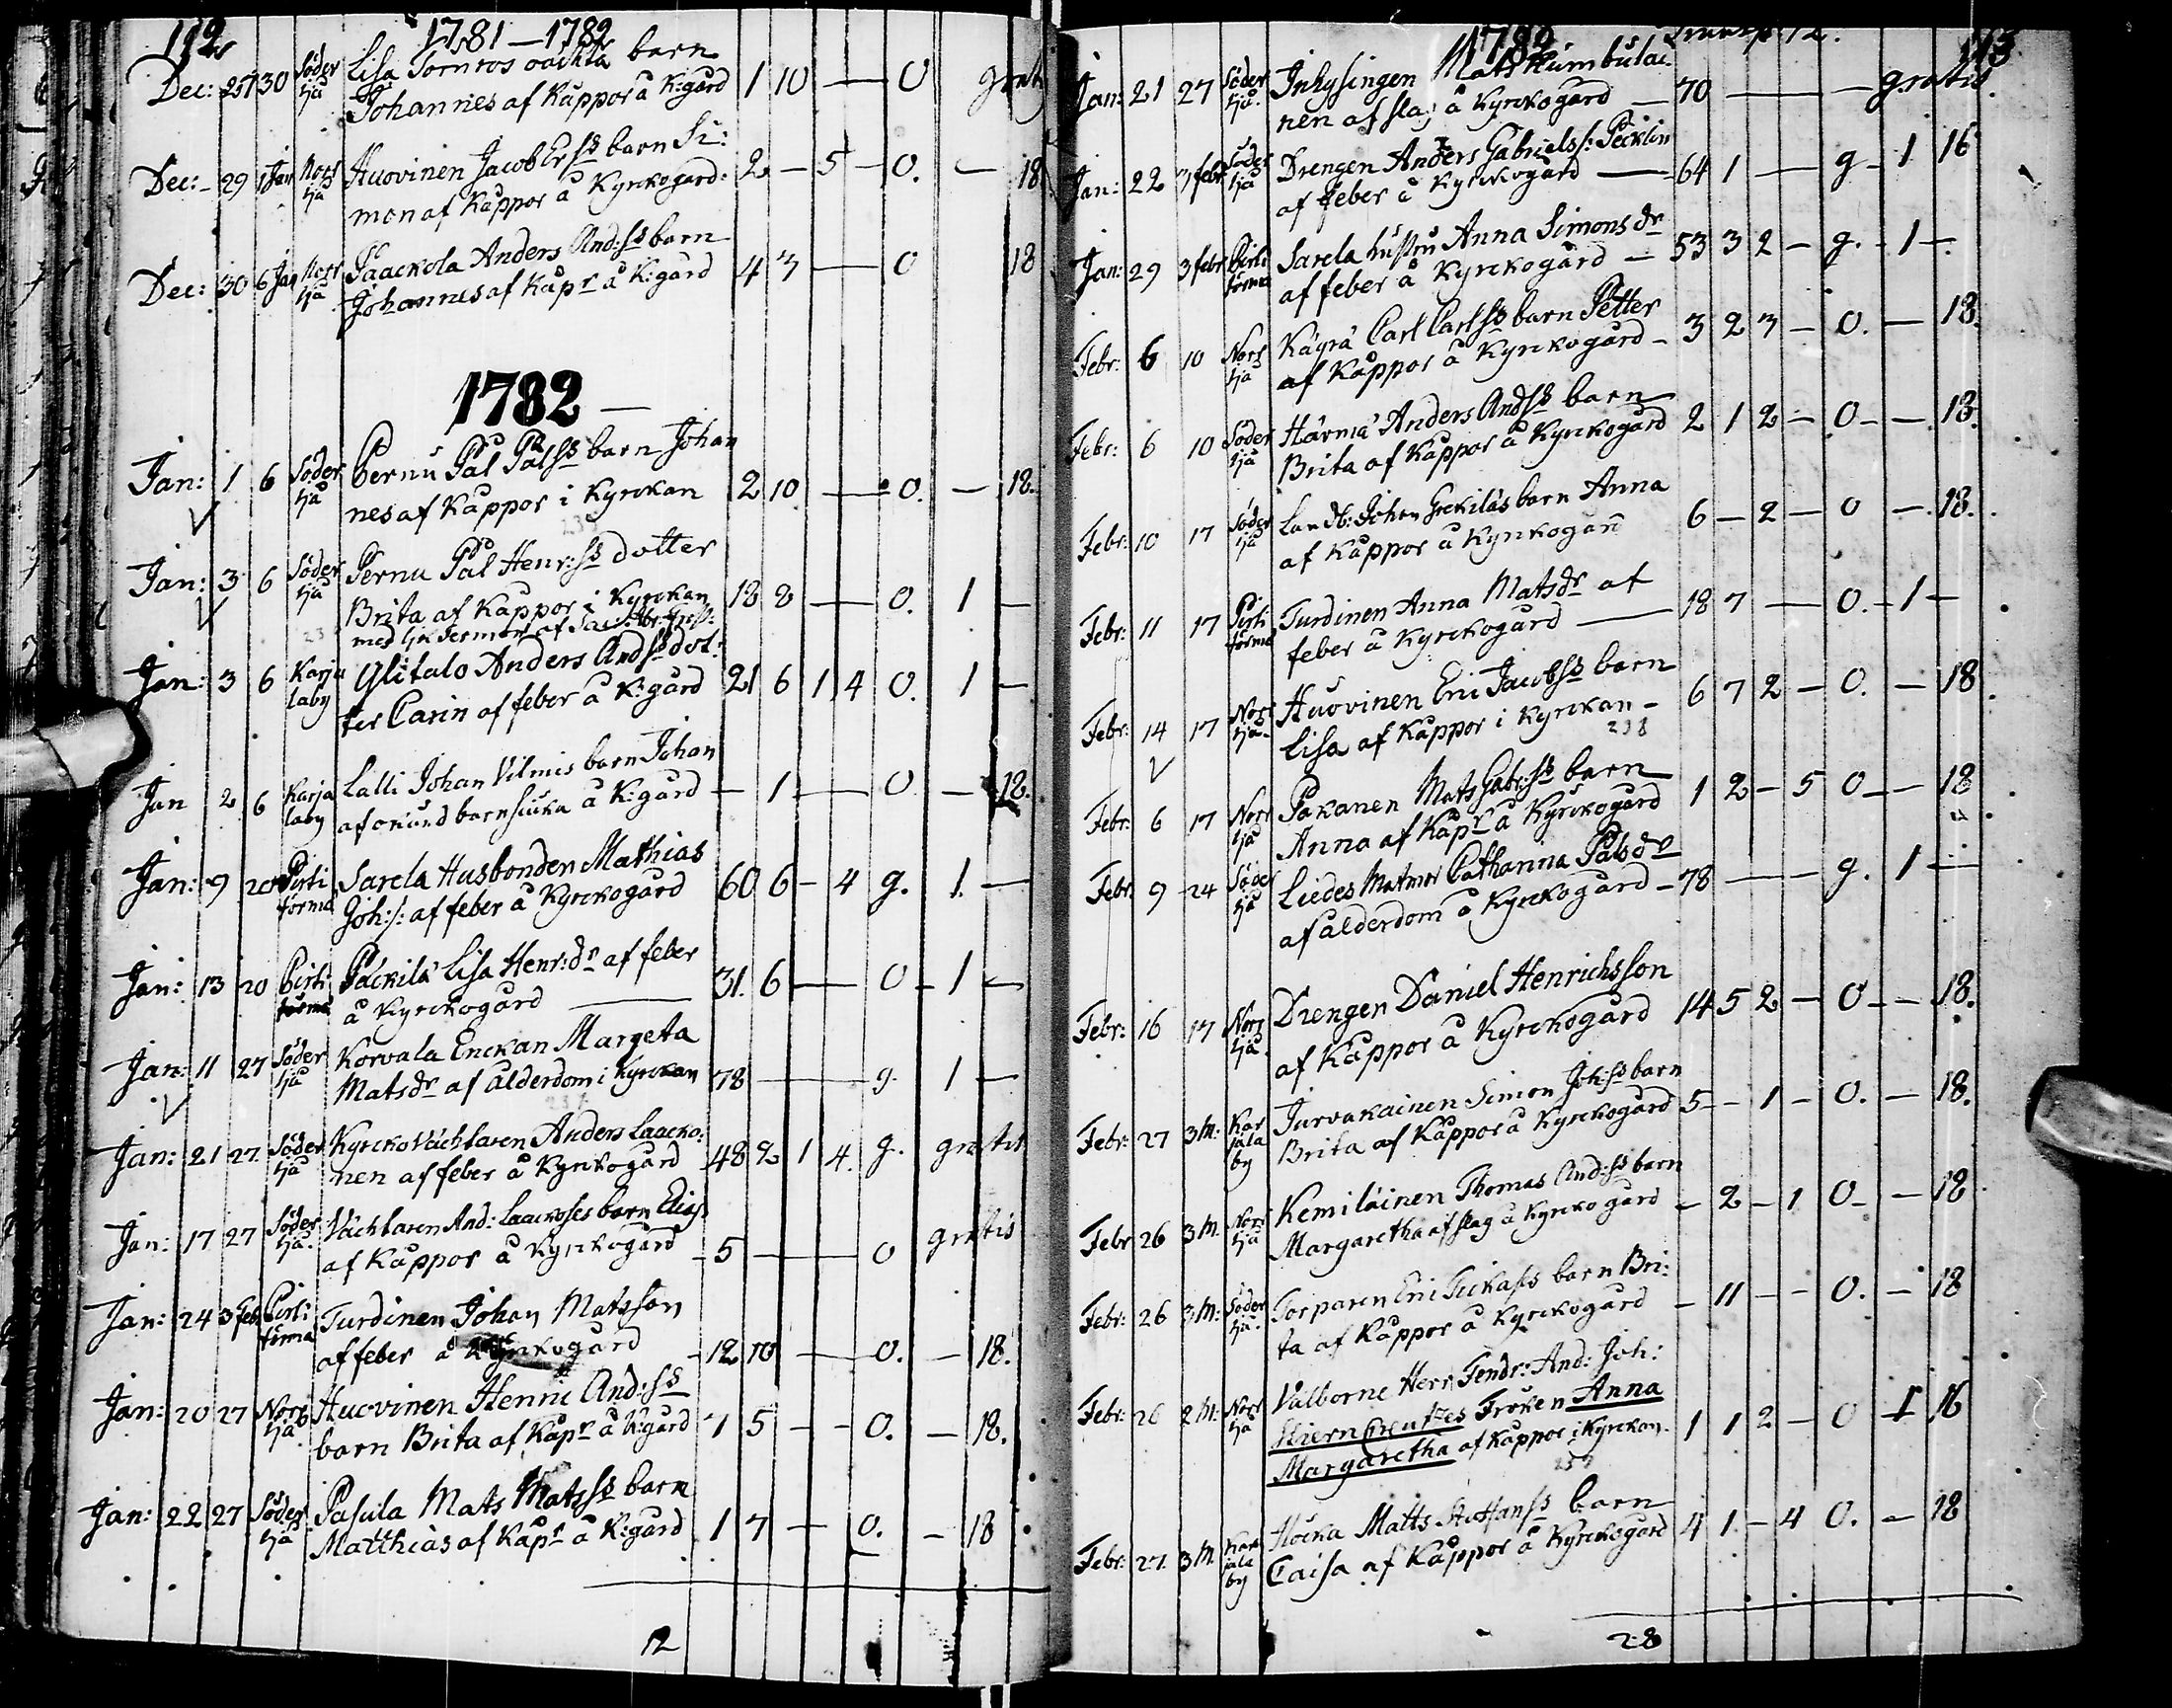 112
1781 — 1782
Dec: 27 30 Söder sjä Lisa Tornros oäckta barn
Johannes af Kåppor å K:gård 1 10 — 0 grat
Dec: 29 1 Jan Norr sjä Huovinen Jacob Ers ss barn Si:
mon af Kåppor å Kyrckogård: 2 — 5 — 0. — 18
Dec: 30 6 Jan Norr sjä Päackola Anders And:ss barn
Johannes af Kåpr å K:gård 4 3 — 0 18
1782
Jan: 1 6 Söder sjä Pernu Pål Påls ss barn Johan
nes af Kåppor i Kyrckan 2 10 — 0. — 18.
Jan: 3 6 Söder sjä Pernu Pål Henr:ss dotter
Brita af Kåppor i Kyrckan 18 8 — 0. 1 —
Jan: 3 6 Karja laby Ylitalo Anders Ands s dot:
ter Carin af feber å K:gård 21 6 1 4 0. 1 —
Jan 2 6 Karja laby Lalli Johan Vilmis barn Johan
af okund barnsiuka å K:gård — 1 — 0 — 18.
Jan: 9 20 Pirti törmä Sarela Husbonden Mathias
Joh:s: af feber å Kyrckogård 60 6 — 4 g. 1. —
Jan: 13 20 Pirti törmä Päckilä Lisa Henr:dr af feber
å Kyrckogård — 31. 6 — 0 — 1 —
Jan: 11 27 Söder sjä Korvala Enckan Margeta
Matsdr af ålderdom i Kyrckan 78 — g. 1 —
Jan: 21 27. Söder sjä Kyrckoväcktaren Anders Laacko:
nen af feber å Kyrckogård 48 2 1 4. g. gratis
Jan: 17 27 Söder sjä. Väcktaren And: Laackoses barn Elias
af Kåppor å Kyrckogård — 5 — 0 gratis
Jan: 24 3 Feb Pirti törmä Turdinen Johan Matsson
af feber å Kyrckogård — 12 10 — 0. — 18.
Jan: 20 27 Norr sjä Huovinen Henric And:ss
barn Brita af Kåpr å K:gård 7 5 — 0. — 18.
Jan: 22 27 Söder sjä Pasula Mats Mats ss barn
Matthias af Kåpr å K:gård 1 7 — 0. — 18
12
1782
113
Jan: 21 27 Söder sjä. Inhysingen Mats Kumbulai:
nen af slag å Kyrckogård — 70 — gratis.
Jan: 22 3 febr Söder sjä Drengen Anders Gabriels s: Päcklin
af feber å Kyrckogård — 64 1 — g — 1 16
Jan: 29 3 febr Pirti törmä Sarela hustru Anna Simons dr
af feber å Kyrckogård — 53 3 2 — g. — 1 —
Febr: 6 10 Norr sjä Käyrä Carl Carls ss barn Petter
af Kåppor å Kyrckogård — 3 2 3 — 0. — 18.
Febr: 6 10 Söder sjä Härmä Anders Ands ss barn
Brita af Kåppor å Kyrckogård 2 1 2 — 0 — 18.
Febr: 10 17 Söder sjä Landb: Johan Grekiläs barn Anna
af Kåppor å Kyrckogård 6 — 2 — 0 — 18.
Febr: 11 17 Pirti törmä Turdinen Anna Matsdr af
feber å Kyrckogård — 18 7 — 0. — 1 —
Febr: 14 17 Norr sjä. Huovinen Eric Jacobs ss barn
Lisa af Kåppor i Kyrckan — 6 7 2 — 0. — 18
238
Febr: 6 17 Norr sjä Pakanen Mats Gabr:ss barn
Anna af Kåpr å Kyrckogård 1 2 — 5 0 — 18
Febr: 9 24 Söder sjä Liedes Matmor Catharina Påls dr
af ålderdom å Kyrckogård — 78 — g. 1 —
Febr: 16 17 Norr sjä. Drengen Daniel Henrichsson
af Kåppor å Kyrckogård 14 5 2 — 0 — 18.
Febr: 27 3 M: Kar jala by Turvakainen Simon Joh:ss barn
Brita af Kåppor å Kyrckogård 5 — 1 — 0. — 18.
Febr 26 3 M. Norr sjä Kemiläinen Thomas And:ss barn
Margaretha af slag å Kyrckogård — 2 — 1 0 — 18
Febr: 26 3 M: Söder sjä. Torparen Eric barn Bri:
ta af Kåppor å Kyrckogård — 11 — 0. — 18
Febr: 26 2 M: Norr sjä Välborne Herr Fendr: And: Joh:
Stierncreutzes Fröken Anna
Margaretha af Kåppor i Kyrckan. 1 1 2 — 0 1 16
Febr: 27. 3 M. Kar jala by Höcka Matts Staffans ss barn
Caisa af Kåppor å Kyrckogård 4 1 — 4 0. — 18
28